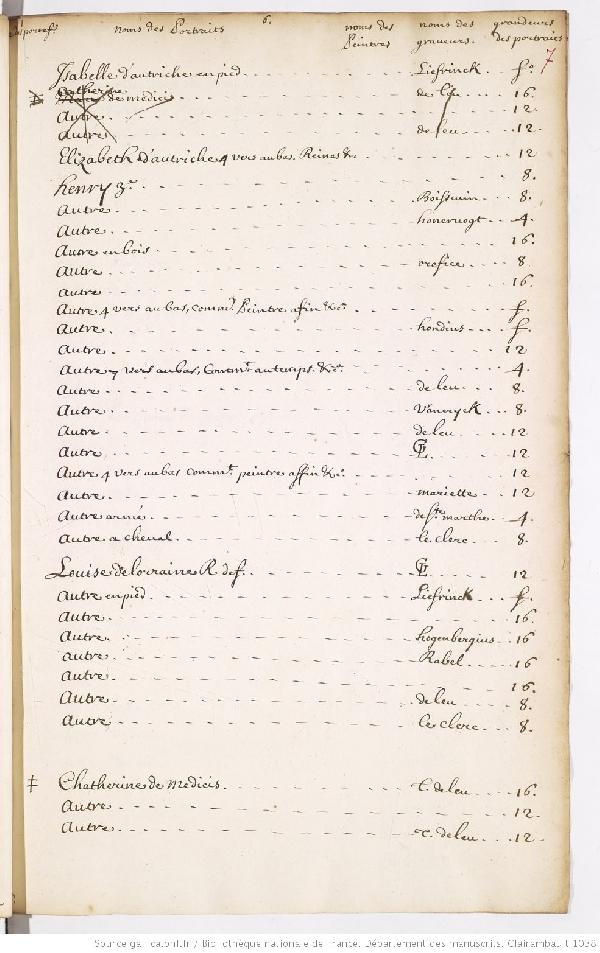 6.
noms des Portraits noms des Peintres noms des graveurs. grandeurs des portraits
7
Isabelle d'autriche en pied Liefrinck. fo.
Catherine de medicis de leu 16.
Autre 12
Autre de leu 12
Elizabeth d'autriche 4 vers au bas. Reines &c. 12
8.
henry 3e.
Autre Boissevin 8.
Autre honervogt 4.
Autre en bois 16.
Autre orefice 8
Autre 16.
Autre 4 vers au bas, comm.t Peintre afin &c.a f.
Autre hondius f.
Autre 12
Autre 7 vers au bas, Comm.t au temps &c.a 4.
Autre de leu 8.
Autre Vaneryck 8.
Autre de leu 12
Autre 12
Autre 4 vers au bas comm.t peintre affin &c.a 12
Autre mariette 12
Autre armé de Ste. marthe 4.
Autre a cheval le clerc 8.
Louise de lorraine R. de f. 12
Autre en pied Liefrinck f.
Autre 16.
Autre hogenbergius 16
Autre Rabel 16
Autre 16.
Autre de leu 8.
Autre le clerc 8.
‡ Chatherine de medicis T. de leu 16.
Autre 12
Autre T. de leu 12
Source gallica.bnf.fr / Bibliothèque nationale de France. Département des manuscrits. Clairambault 1038